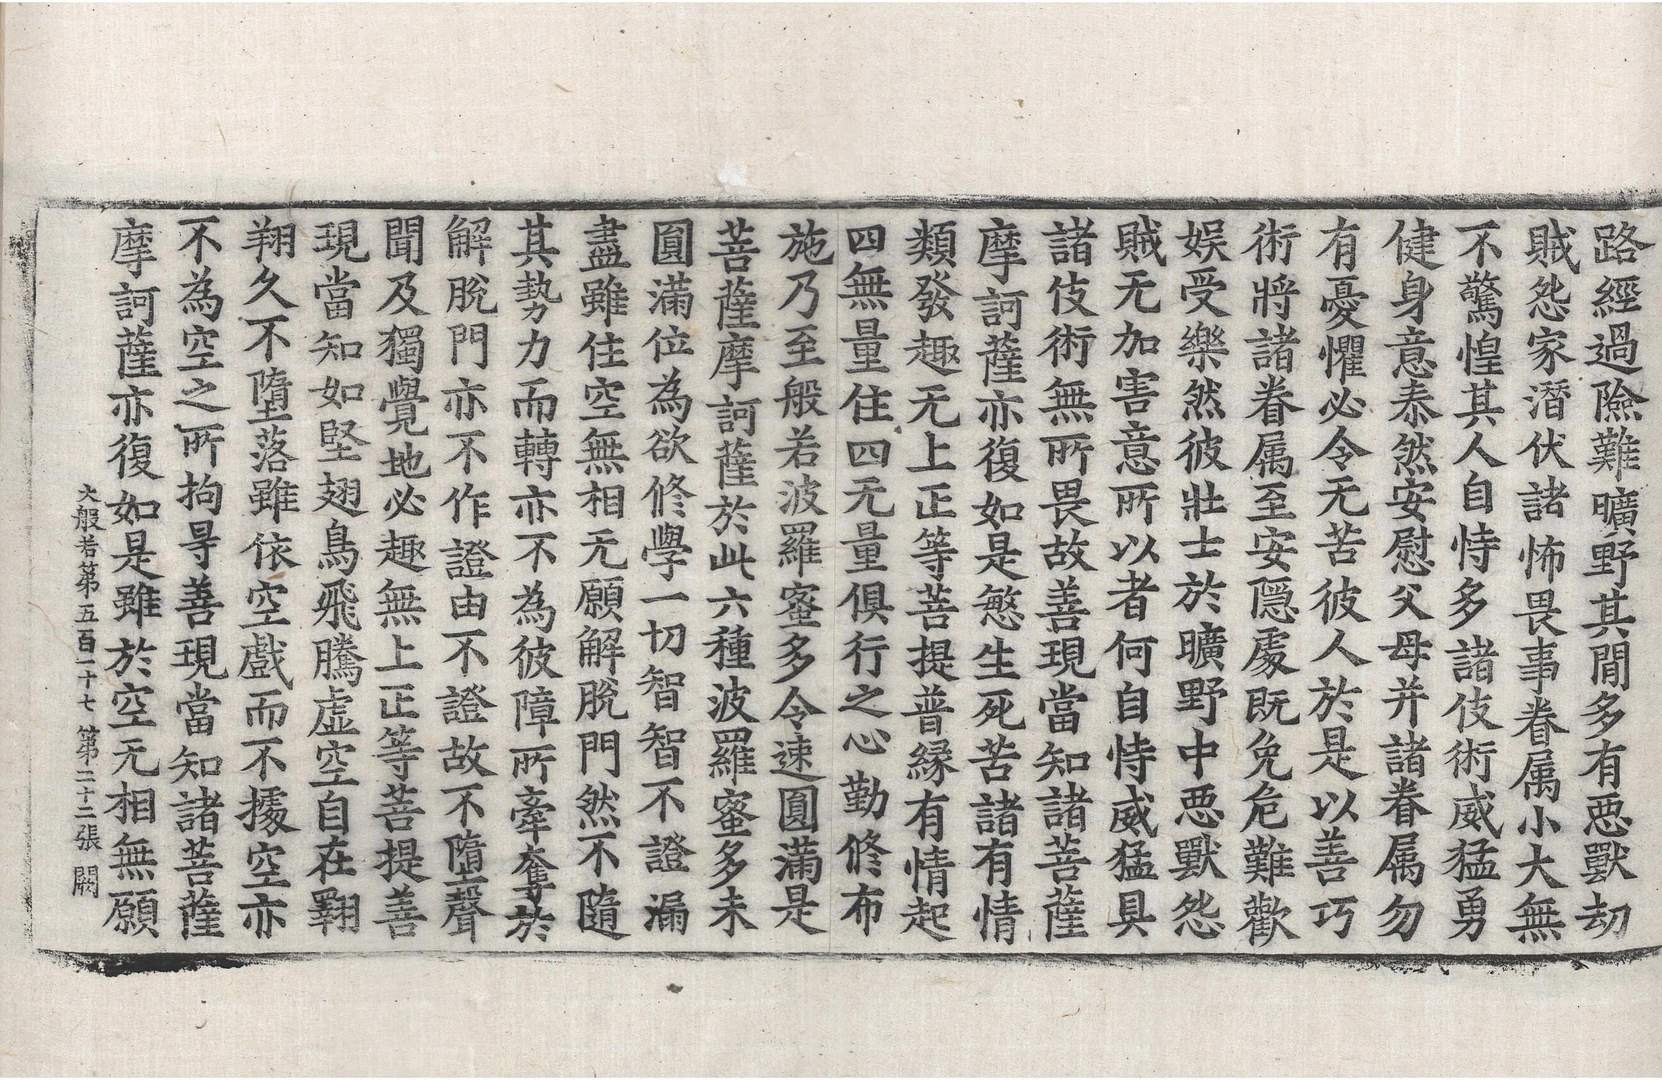 路經過險難曠野其閒多有惡獸劫
賊怨家潛伏諸怖畏事眷属小大無
不驚惶其人自恃多諸伎術威猛勇
健身意泰然安慰父母并諸眷属勿
有憂懼必令无苦彼人於是以善巧
術將諸眷属至安隱處既免危難歡
娛受樂然彼壯士於曠野中惡獸怨
賊无加害意所以者何自恃威猛具
諸伎術無所畏故善現當知諸菩薩
摩訶薩亦復如是愍生死苦諸有情
類發趣无上正等菩提普緣有情起
四無量住四无量俱行之心勤修布
施乃至般若波羅蜜多令速圓滿是
菩薩摩訶薩於此六種波羅蜜多未
圓滿位為欲修學一切智智不證漏
盡雖住空無相无願解脫門然不隨
其勢力而轉亦不為彼障所牽奪於
解脫門亦不作證由不證故不墮聲
聞及獨覺地必趣無上正等菩提善
現當知如堅翅鳥飛騰虛空自在翱
翔久不墮落雖依空戲而不據空亦
不為空之所拘㝵善現當知諸菩薩
摩訶薩亦復如是雖於空无相無願
大般若第五百一十七 第二十二張 闕